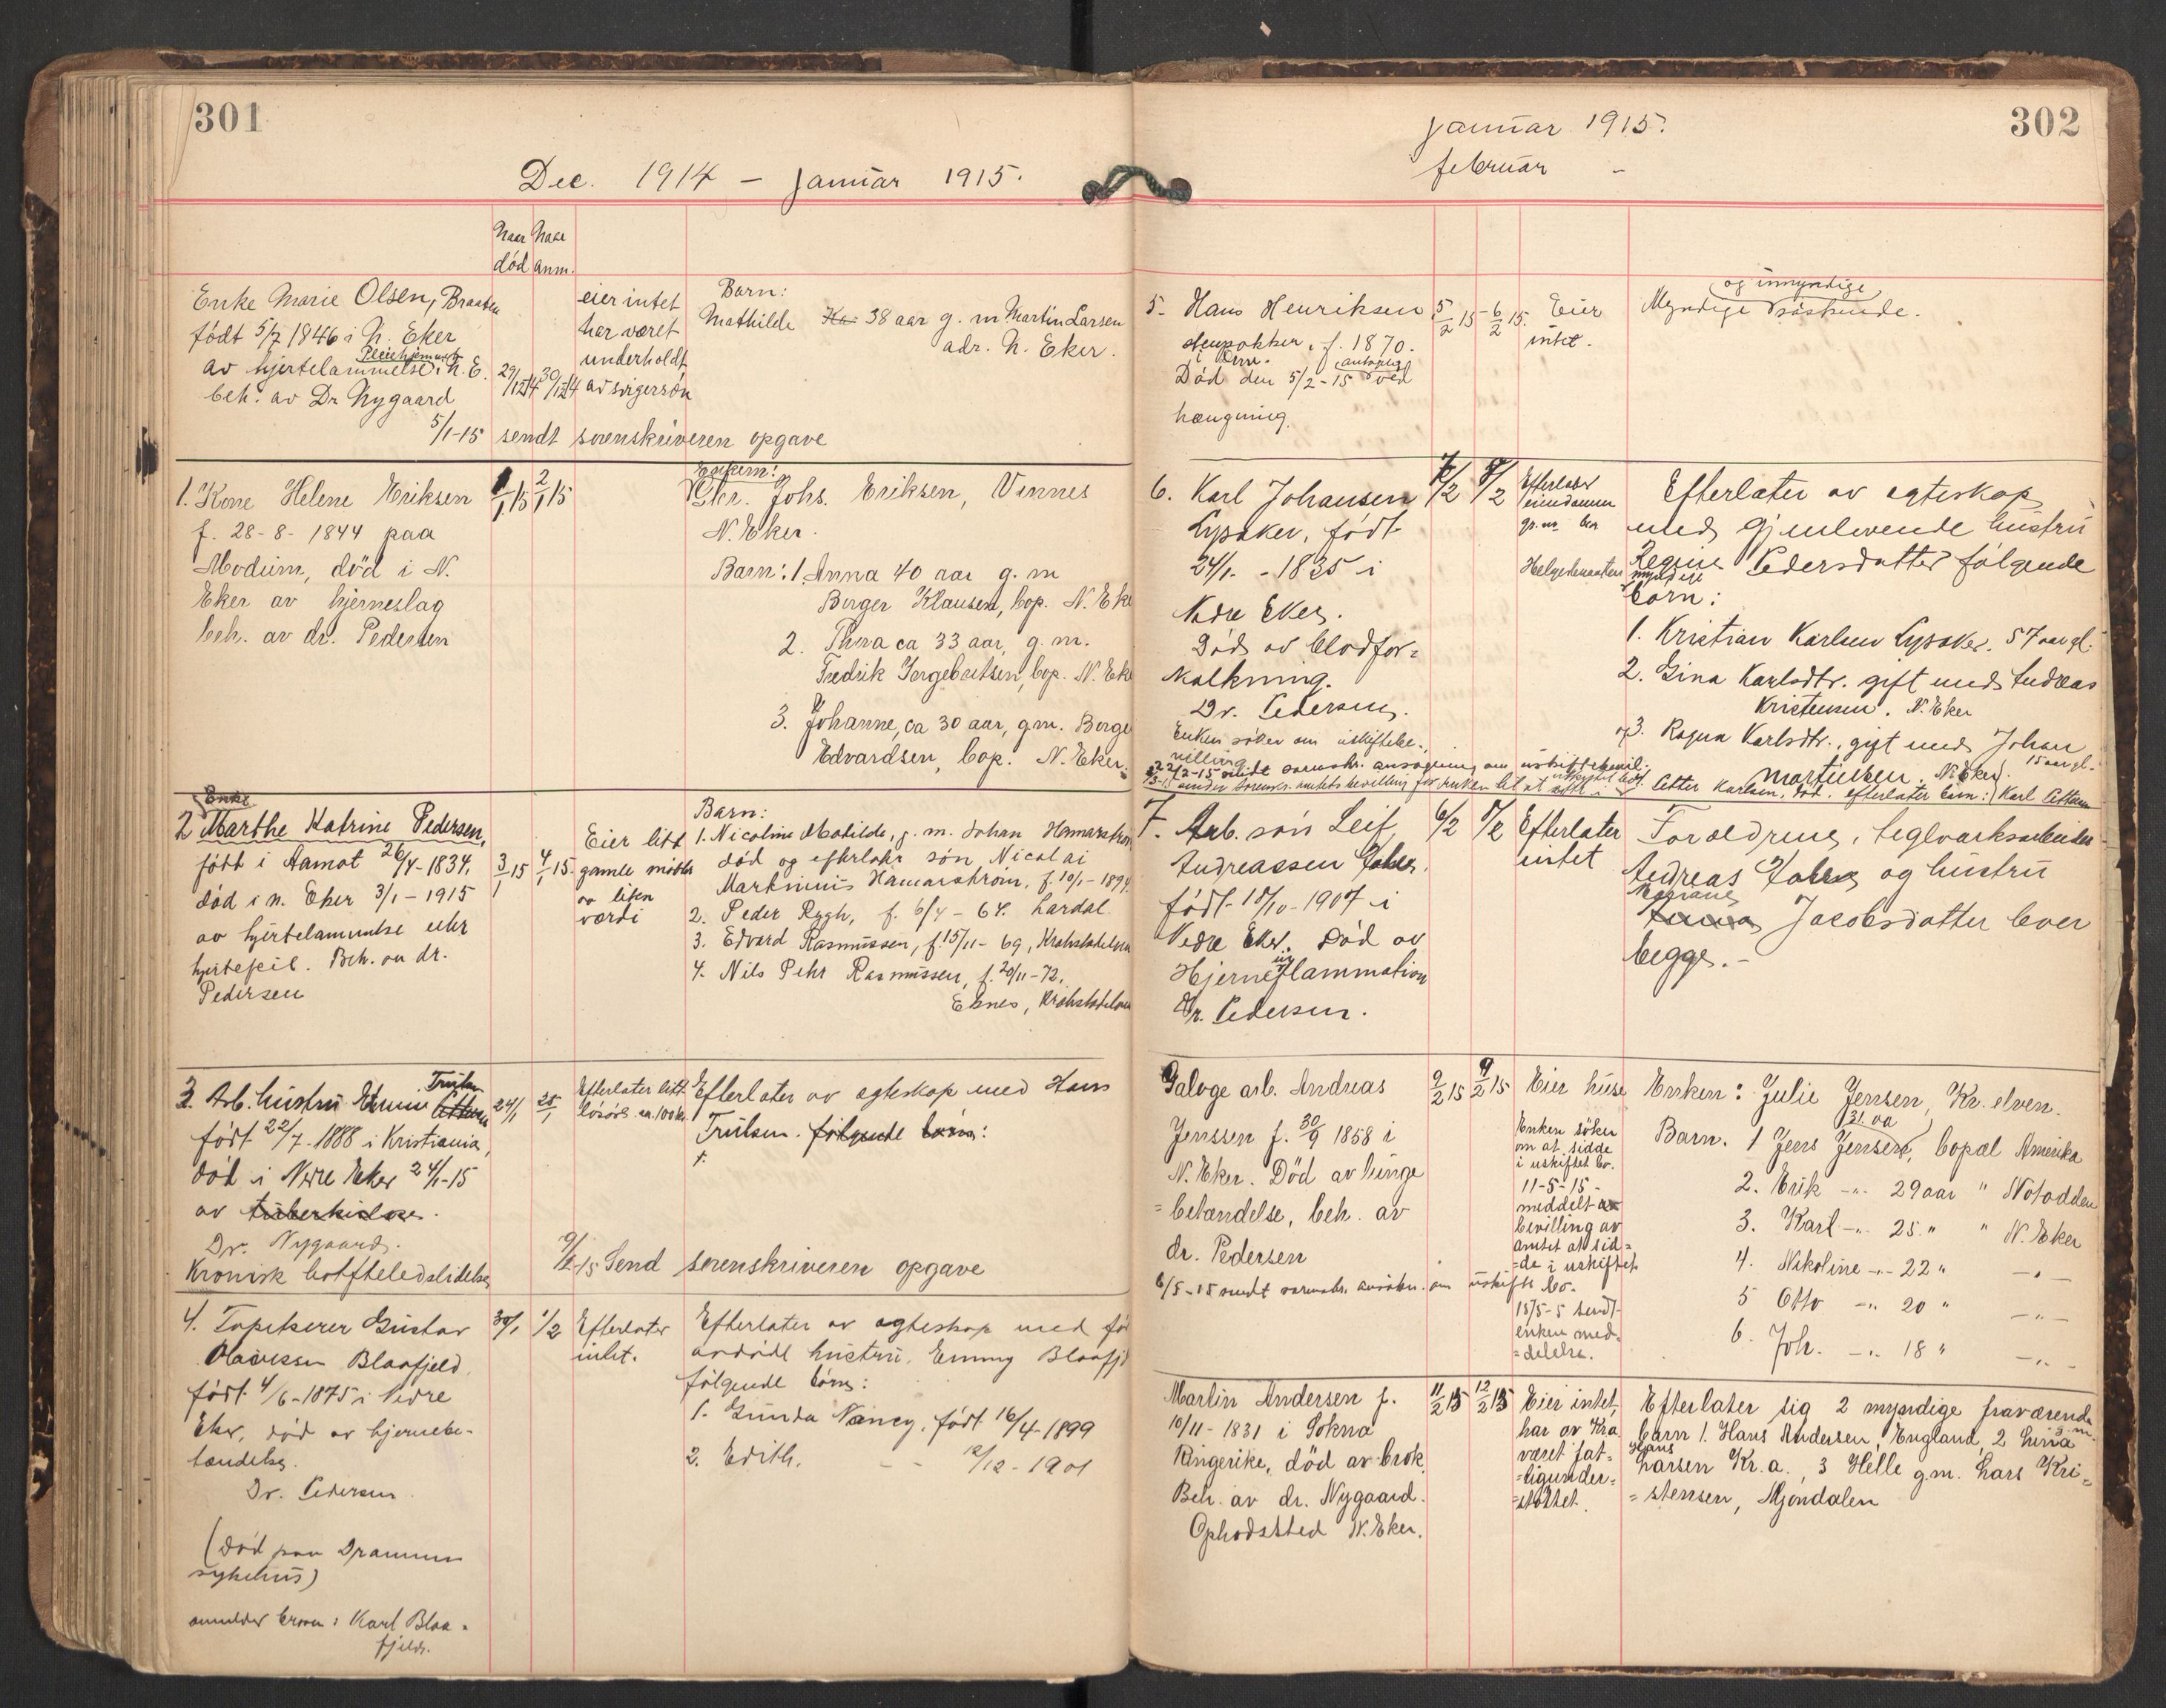 301
Dec. 1914 – januar 1915.
Naar død
Naar anm.
Enke Marie Olsen, Braaten
født 5/7 1846 i N. Eker
av hjertelammelse i N. E.
Pleiehjemmet
beh. av Dr Nygaard
29/12 14
30/12 14
eier intet
har været
underholdt
av svigersøn
Barn:
Mathilde 38 aar g. m Martin Larsen
adr. N. Eker.
5/1-15 sendt sorenskriveren opgave
1. Kone Helene Eriksen
f. 28-8-1844 paa
Modum, død i N.
Eker av hjerneslag
beh. av dr. Pedersen
1/1 15
2/1 15
Johs. Eriksen, Vinnes
N. Eker.
Barn: 1. Anna 40 aar g. m
Borger Klausen, bop. N. Eke
2. Thora ca 33 aar, g. m.
Fredrik Ingebretsen, bop. N. Eke
3. Johanne, ca 30 aar, g.m. Borge
Edvardsen, bop. N. Eker.
Enke
2 Marthe Katrine Pedersen,
født i Aamot 26/4-1834,
død i n. Eker 3/1-1915
av hjertelammelse eller
hjertefeil. Beh. av dr.
Pedersen
3/1 15
4/1 15.
Eier litt
gamle møbler
av liten
værdi
Barn:
1. Nicoline Matilde, g. m. Johan Hamarstrøm
død og efterlater søn Nicolai
Martinius Hamarstrøm, f. 10/1-1894
2. Peder Rygh, f. 6/4-64. Lardal
3. Edvard Rasmussen, f. 15/11-69, Krokstadelven
4. Nils Petter Rasmussen, f. 20/11-72,
Krokstadelven
3. Arb. hustru Emma Trulsen
født 22/7-1888 i Kristiania,
død i Nedre Eker 24/1-15
av tuberkulose.
Dr. Nygaard.
Kronisk hofteledslidelse
24/1
25/1
Efterlater litt
løsøre ca. 100 kr.
Efterlater av egteskap med Hans
Trulsen. følgende børn:
1.
9/2 15 Send sorenskriveren opgave
4. Tapetserer Gustav
Olavessen Blaafjeld,
født 4/6-1875 i Nedre
Eker, død av hjernebe-
tændelse.
Dr. Pedersen
(død paa Drammen
sykehus)
anmelder broren: Karl Blaa-
fjeld.
30/1
1/2
Efterlater
intet.
Efterlater av egteskap med før
avdøde hustru, Emmy Blaafj
følgende børn:
1. Gunda Nancy, født 16/4-1899
2. Edith. – – 12/12-1901
302
januar 1915.
februar –
5. Hans Henriksen
f. 1870.
Død den 5/2-15 antagelig ved
hængning.
5/2 15
6/2 15.
Eier
intet.
Myndige og umyndige søskende.
6. Karl Johansen
Lysaker, født
24/1.-1835 i
Nedre Eker.
Død av blodfor-
kalkning.
Dr. Pedersen.
Enken søker om uskiftebe-
villing
7/2
8/2
Efterlater
eiendommen
gr. nr. bnr
Efterlater av egteskap
med gjenlevende hustru
Regine Pedersdatter følgende
myndige
børn:
1. Kristian Karlsen Lysaker. 57 aar gl.
2. Gina Karlsdtr. gift med Andreas
Kristensen. N. Eker
og 3. Ragna Karlsdtr., gift med Johan
Martinsen. N. Eker.
22/2-15 sendt sorenskr. ansøgning om uskiftebevil.
Otter Karlsen, død. efterlater barn: Karl Ottersen 15 aar gl.
7. Arb. søn Leif
Andreassen
født 18/10-1907 i
Nedre Eker. Død av
Hjerneinflammation
Dr. Pedersen.
6/2
8/2
Efterlater
intet
Forældrene, teglverksarbeider
Andreas og hustru
Jacobsdatter lever
begge.–
Galoge arb. Andreas
Jenssen f. 30/9 1858 i
N. Eker. Død av lunge
=betændelse, beh. av
dr. Pedersen
6/5-15 sendt sorenskr. ansøkn. om uskifte bo.
9/2 15
9/2 15
Eier huse
Enken søker
om at sidde
i uskiftet bo.
11-5-15-
meddelt
bevilling av
amtet at sid=
=de i uskiftet
15/5-5 sendt
enken med=
=delelse.
Enken: Julie Jensen, Kr. elven.
Barn. 1 Jens Jensen, 31. aa bopæl Amerika
2. Erik –"– 29 aar " Notodden
3. Karl –"– 25. " " N. Eker
4. Nikoline –"– 22 " –"–
5 Otto –"– 20 " –"–
6. Joh. –"– 18 " –"–
Martin Andersen f.
10/11-1831 i Sokna
Ringerike, død av brok.
Beh. av dr. Nygaard.
Opholdssted N. Eker.
11/2 15
12/2 15
Eier intet,
har av Kra
været fat-
=tigunder-
=støttet.
Efterlater sig 2 myndige fraværende
barn 1. Hans Andersen, England, 2 Lina g. m.
Hans
Larsen Kr.a., 3 Helle g.m. Lars Kri=
=stensen, Mjøndalen